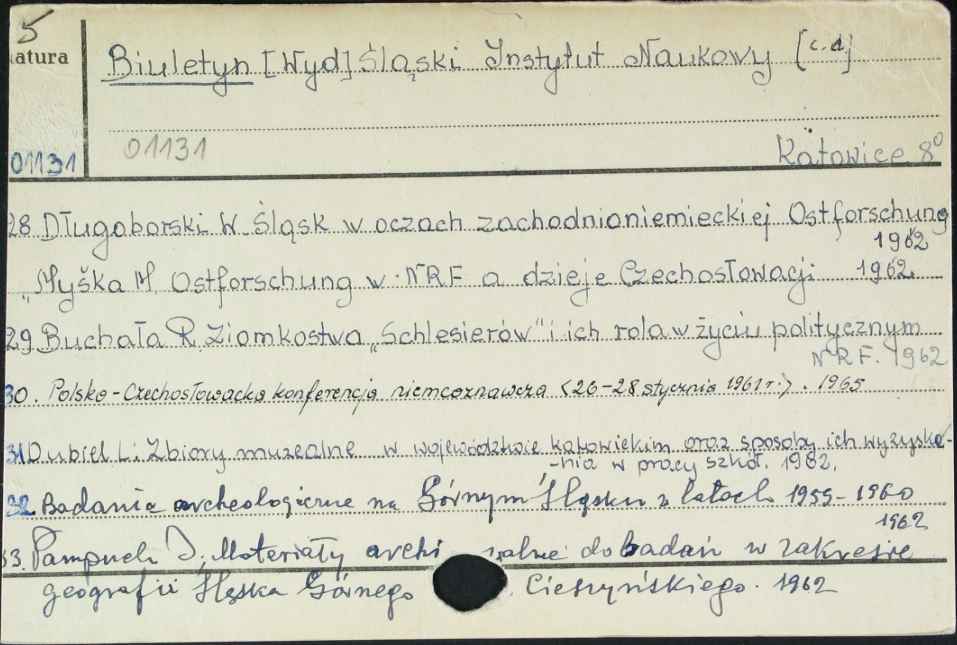 5
atura
Biuletyn [Wyd] Śląski Instytut Naukowy [c.d.]
01131 01131 Katowice 8°
28 Długoborski W. Śląsk w oczach zachodnioniemieckiej Ostforschung
1962
"Myška M. Ostforschung w NRF a dzieje Czechosłowacji 1962.
29 Buchała R. Ziomkostwa „Schlesierów" i ich rola w życiu politycznym
NRF. 1962
30. Polsko-Czechosłowacka konferencja niemcoznawcza (26-28 stycznia 1961 r.). 1965
31 Dubiel L. Zbiory muzealne w województwie katowickim oraz sposoby ich wyzyska-
-nia w pracy szkół. 1962.
32 Badania archeologiczne na Górnym Śląsku w latach 1959-1960
1962
33. Pampuch J. Materiały archi walne do badań w zakresie
geografii Śląska Górnego Cieszyńskiego. 1962